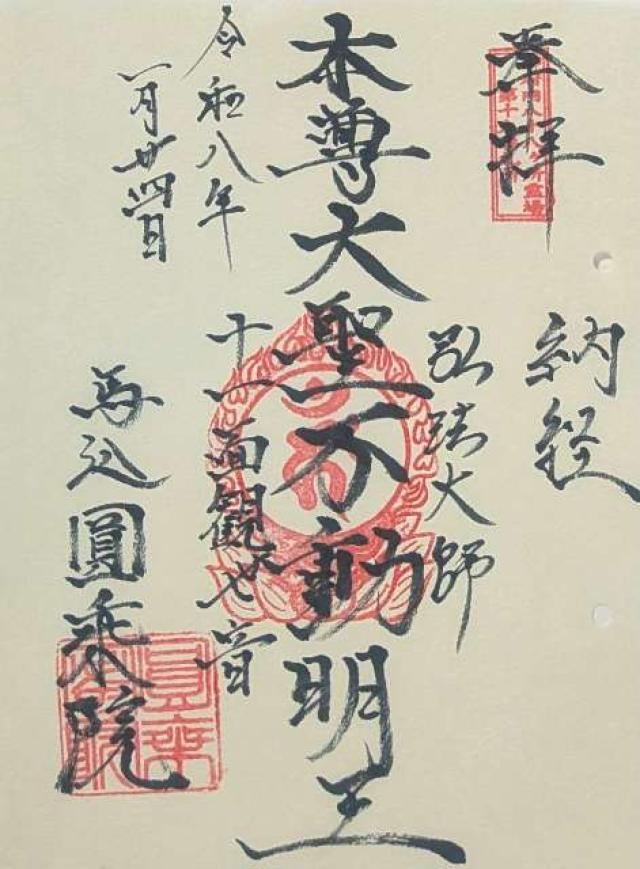 奉拝
納経
弘法大師
本尊大聖不動明王
十一面觀世音
令和八年
一月廿四日
馬込圓乗院